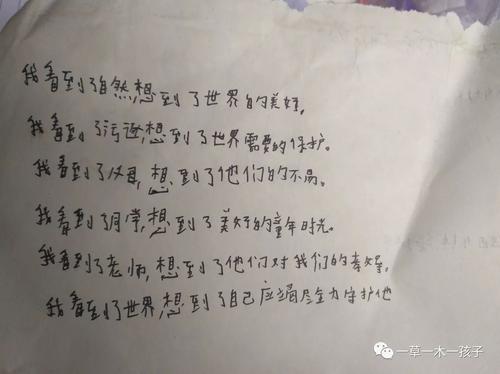 我看到了自然,想到了世界的美好,
我看到了污迹,想到了世界需要的保护。
我看到了父母,想到了他们的不易。
我看到了同学,想到了美好的童年时光。
我看到了老师,想到了他们对我们的
我看到了世界,想到了自己应当竭尽全力守护他
一草一木一孩子